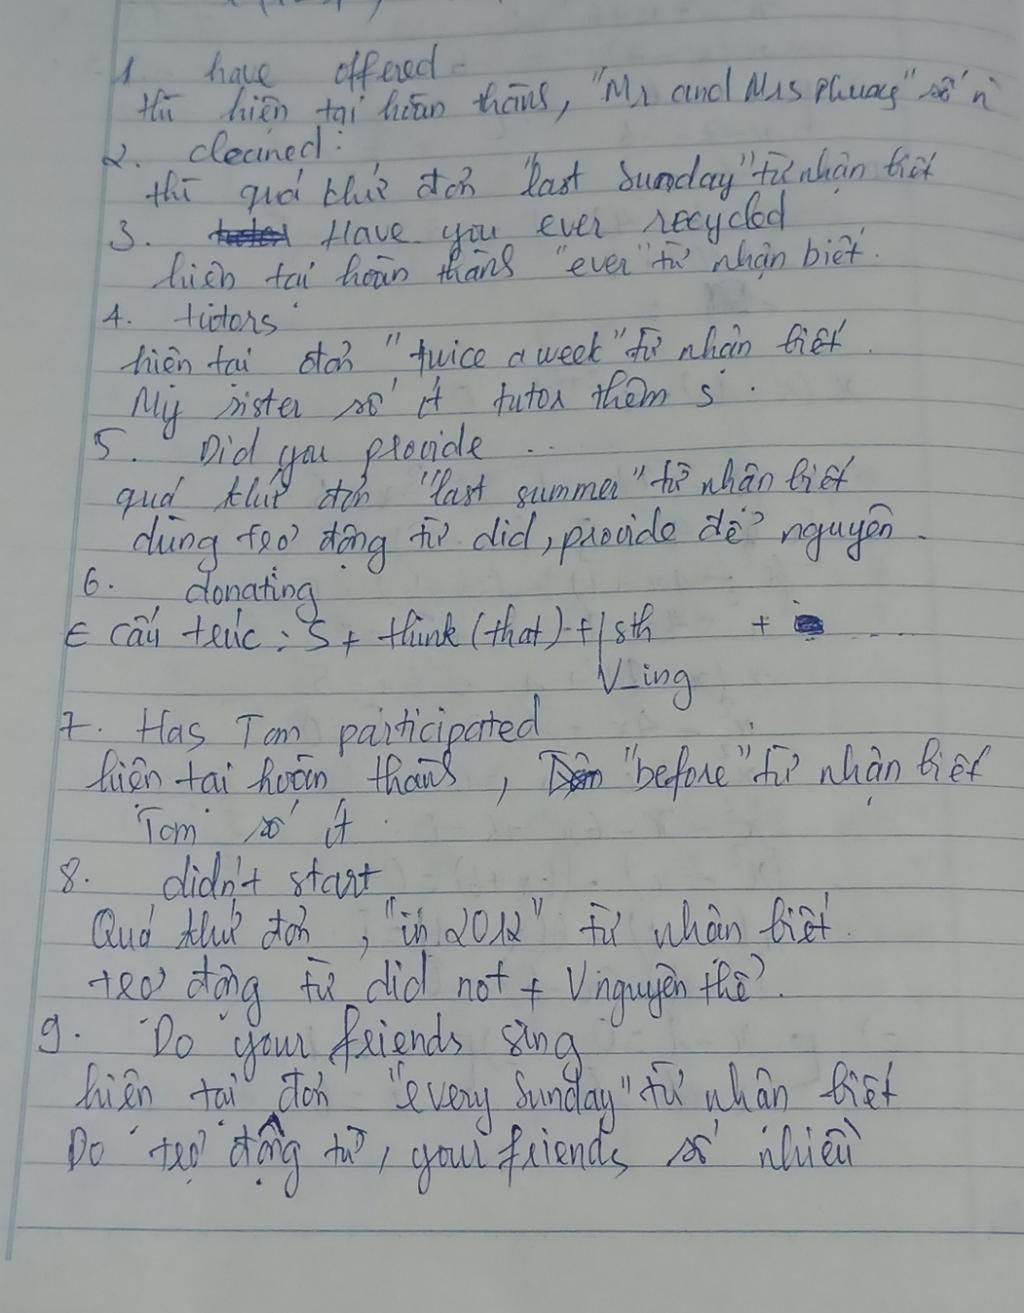 1 have offered
thì hiện tại hoàn thành, "Mr and Mrs Phuong" số n
2. cleaned:
thì quá khứ đơn "last Sunday" từ nhận biết
3. Have you ever recycled
hiện tại hoàn thành "ever" từ nhận biết.
4. tutors
hiện tại đơn "twice a week" từ nhận biết.
My sister số ít tutor thêm s.
5. Did you provide ...
quá khứ đơn "last summer" từ nhận biết
dùng trợ động từ did, provide để nguyên.
6. donating
cấu trúc: S + think (that) + sth + ....
V_ing
7. Has Tom participated
hiện tại hoàn thành, "before" từ nhận biết
Tom số ít
8. didn't start
Quá khứ đơn, "in 2012" từ nhận biết.
trợ động từ did not + V nguyên thể.
9. Do your friends sing
hiện tại đơn "every Sunday" từ nhận biết
Do trợ động từ, your friends số nhiều